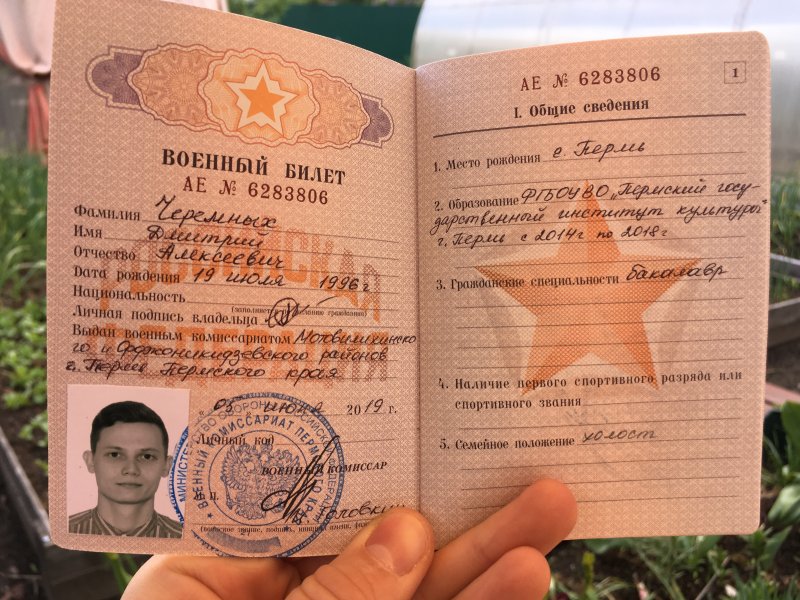 ВОЕННЫЙ БИЛЕТ
АЕ № 6283806
Фамилия Черемных
Имя Дмитрий
Отчество Алексеевич
Дата рождения 19 июля 1996 г
Национальность
(заполняется по желанию гражданина)
Личная подпись владельца
Выдан военным комиссариатом Мотовилихинско
го и Орджоникидзевского районов
г. Перми Пермского края
РОССИЙСКАЯ
ФЕДЕРАЦИЯ
" 03 " июня 2019 г.
Личный код
ВОЕННЫЙ КОМИССАР
М.П.
(воинское звание, подпись, инициал имени,
МИНИСТЕРСТВО ОБОРОНЫ РОССИЙСКОЙ ФЕДЕРАЦИИ
ВОЕННЫЙ КОМИССАРИАТ ПЕРМСКОГО КРАЯ
АЕ № 6283806
1
I. Общие сведения
1. Место рождения г. Пермь
2. Образование ФГБОУ ВО "Пермский госу-
дарственный институт культуры"
г. Пермь с 2014г по 2018г
3. Гражданские специальности бакалавр
4. Наличие первого спортивного разряда или
спортивного звания
5. Семейное положение холост